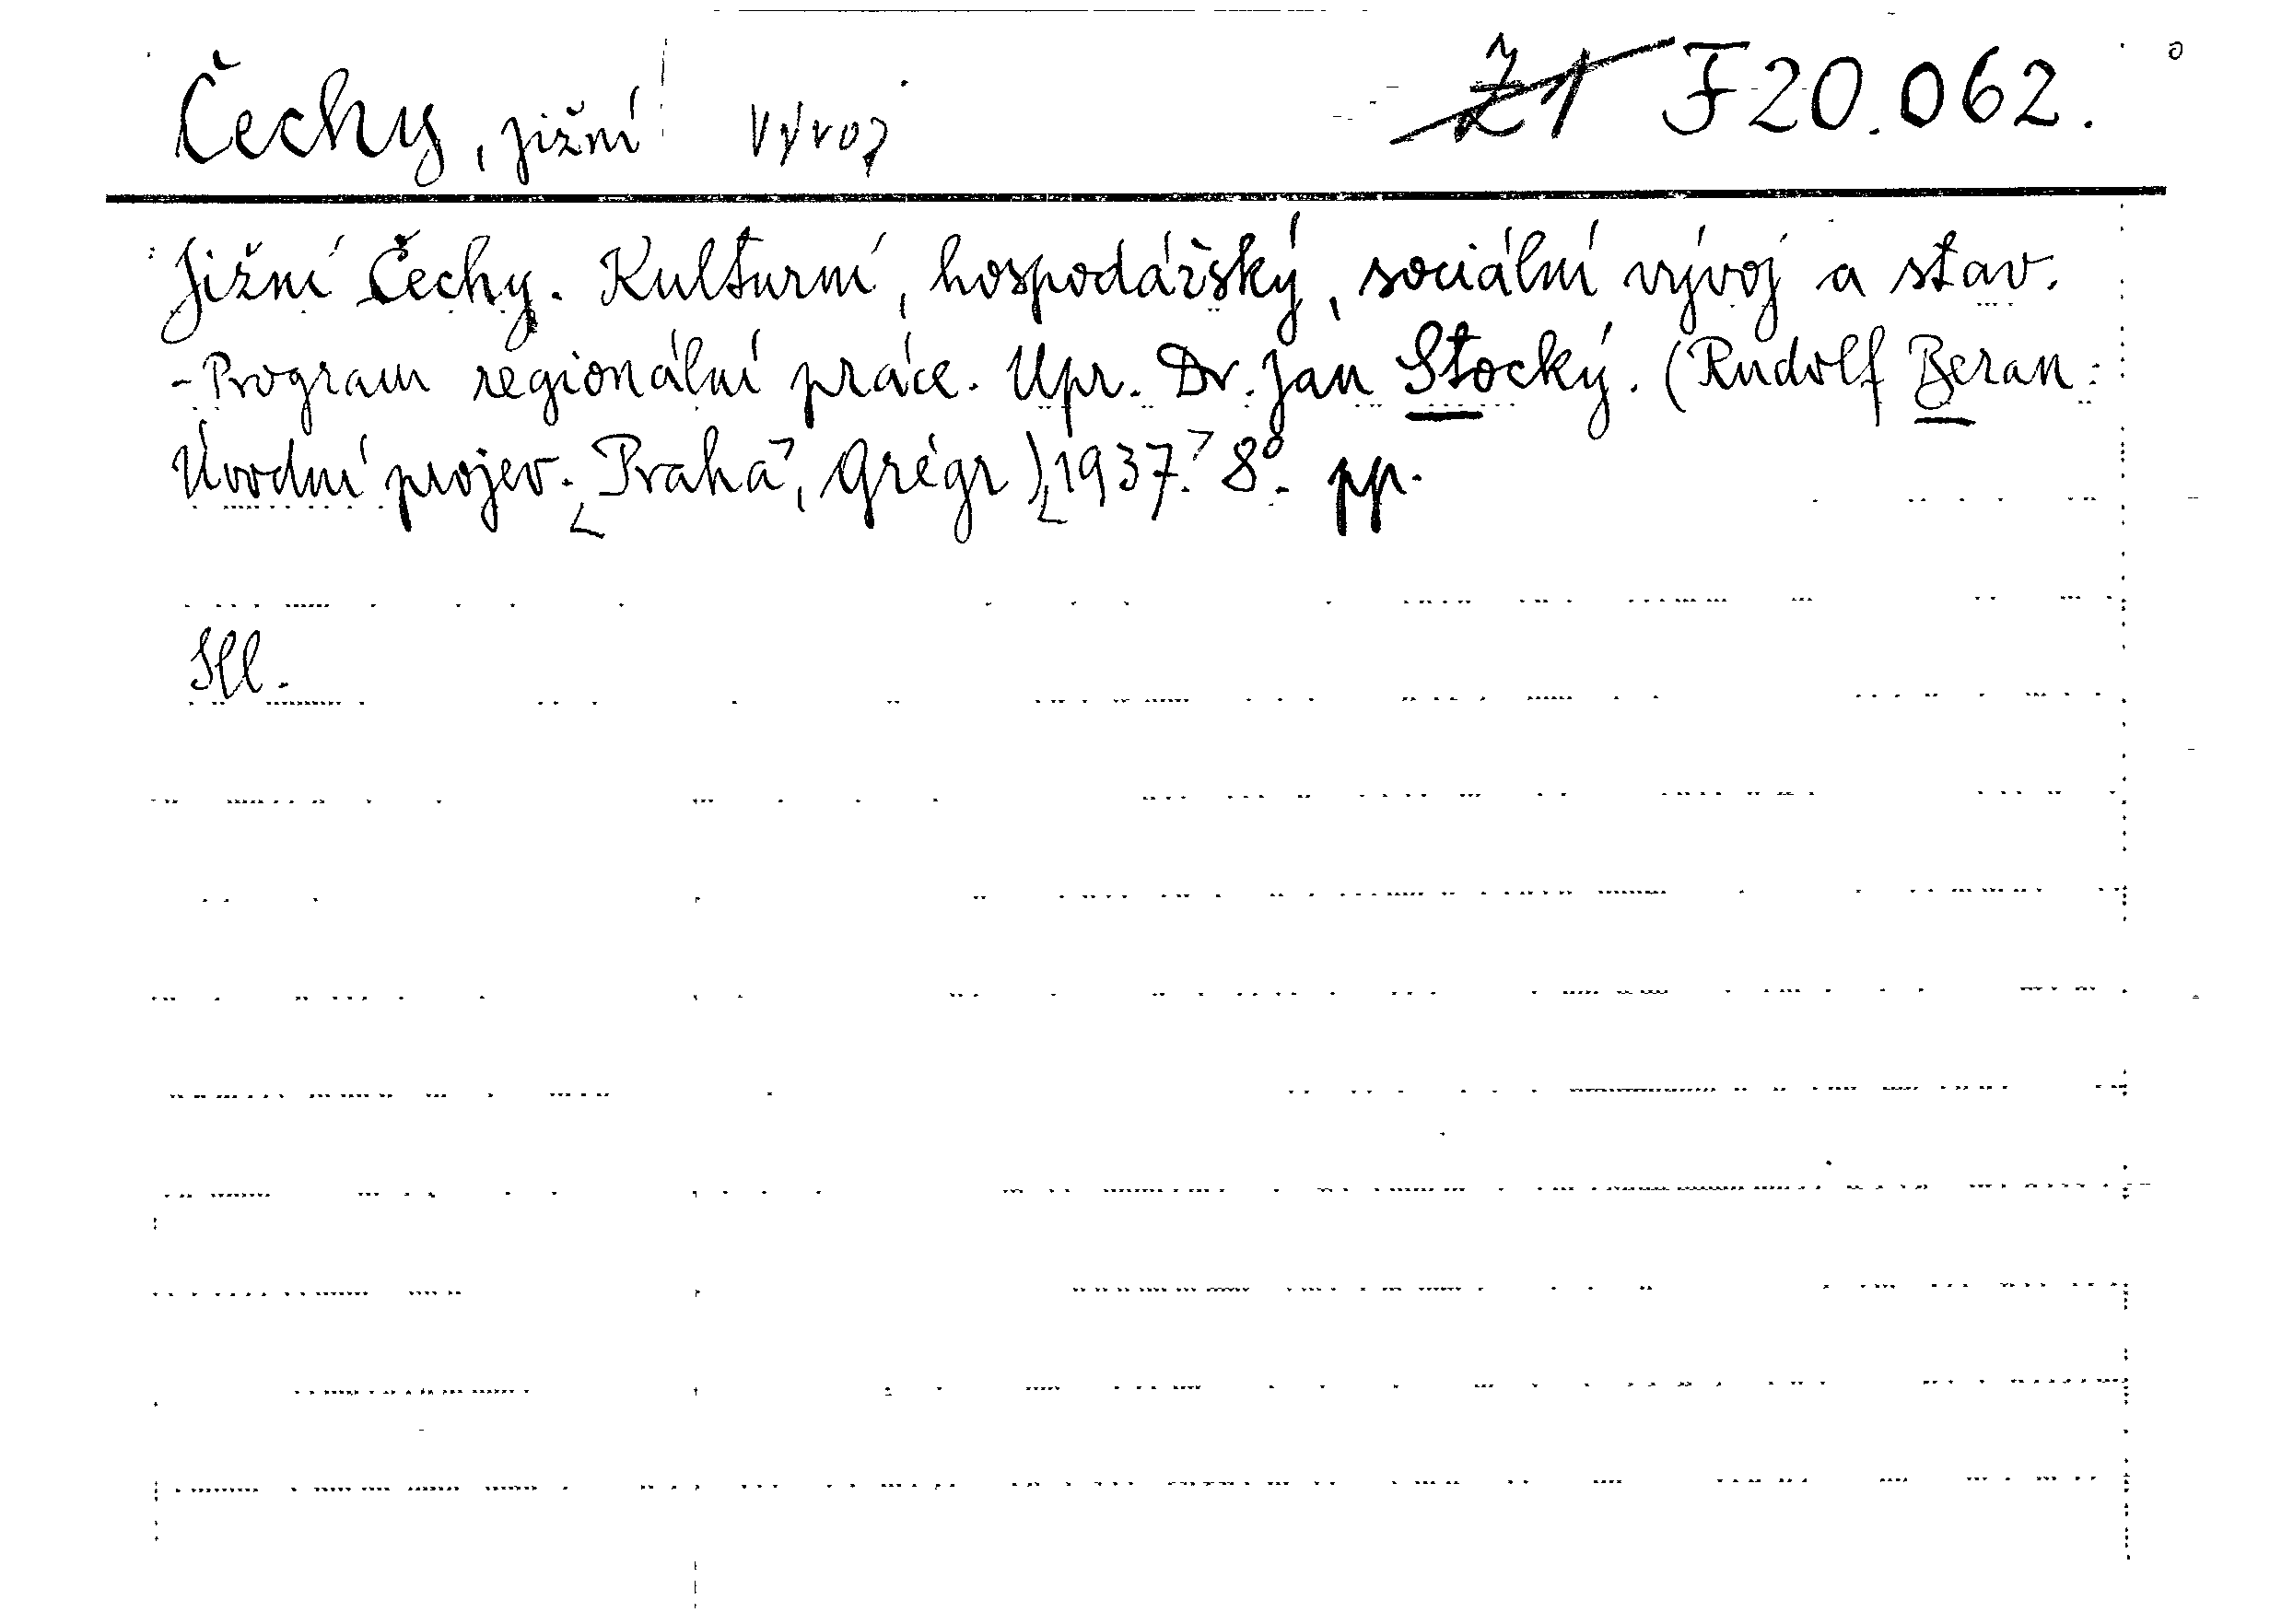 Čechy, jižní vývoj Ž1 F20.062.
Jižní Čechy. Kulturní, hospodářský, sociální vývoj a stav.
-Program regionální práce. Upr. Dr. Jan Stocký. (Rudolf Beran:
Úvodní projev. [Praha], Grégr), [1937.] 8°. pp.
Ill.